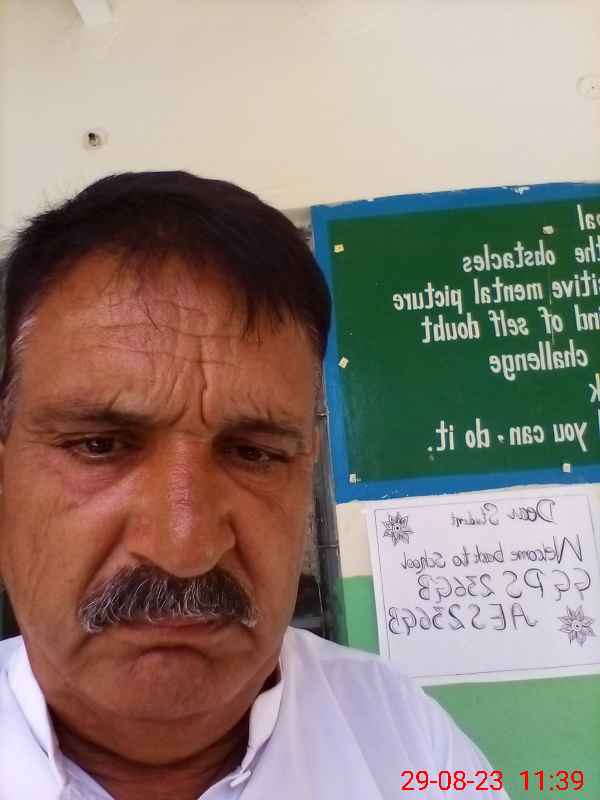 al
the obstacles
sitive mental picture
ind of self doubt
challenge
k
you can. do it.
Dear Student
Welcome back to School
GGPS 236GB
AES 236GB
29-08-23 11:39